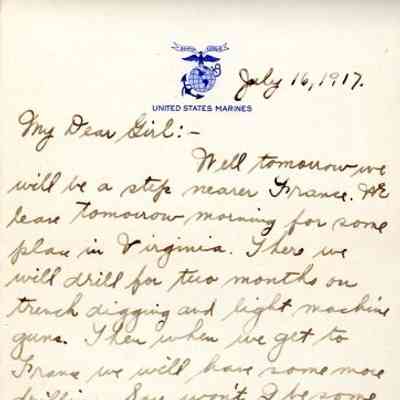 July 16, 1917.
UNITED STATES MARINES
My Dear Girl:-
Well tomorrow we
will be a step nearer France. We
leave tomorrow morning for some
place in Virginia. There we
will drill for two months on
trench digging and light machine
guns. Then when we get to
France we will have some more
drilling. Say won't I be some